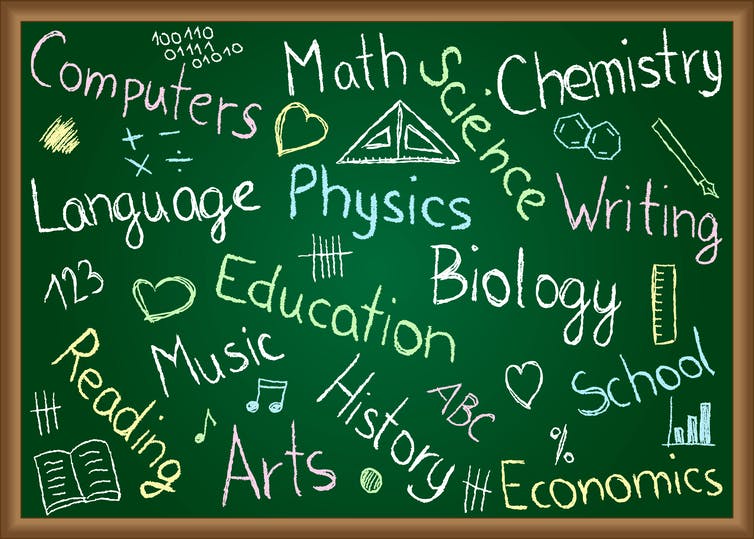 100110
01111
01010
Computers
Math
Science
Chemistry
+ −
× ÷
Language
Physics
Writing
123
Education
Biology
Music
Reading
History
ABC
School
Arts
%
Economics